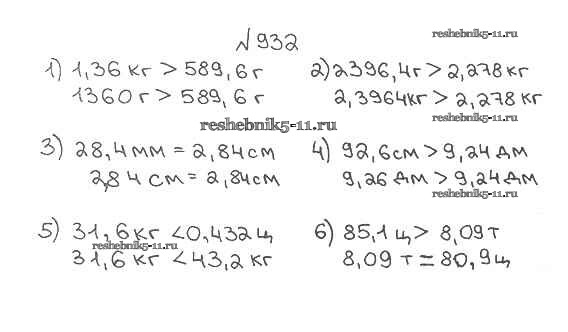 №932
reshebnik5-11.ru
1) 1,36 кг > 589,6 г
2) 2396,4 г > 2,278 кг
1360 г > 589,6 г
2,3964 кг > 2,278 кг
reshebnik5-11.ru
reshebnik5-11.ru
3) 28,4 мм = 2,84 см
4) 92,6 см > 9,24 дм
2,84 см = 2,84 см
9,26 дм > 9,24 дм
reshebnik5-11.ru
5) 31,6 кг < 0,432 ц
6) 85,1 ц > 8,09 т
reshebnik5-11.ru
31,6 кг < 43,2 кг
8,09 т = 80,9 ц